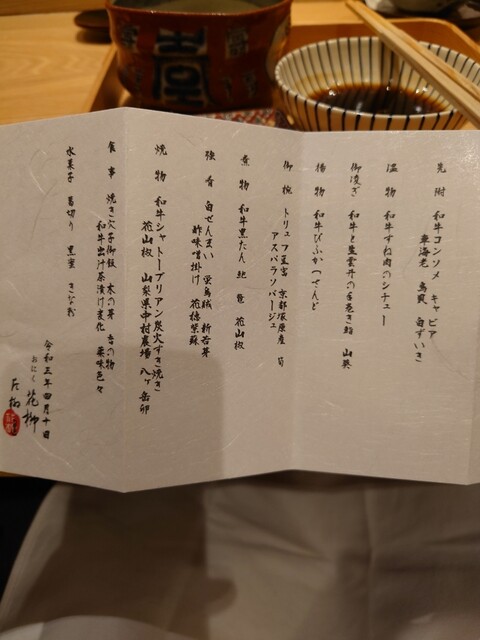 先附 和牛コンソメ キャビア
車海老 蔦爽 白ずいき
温物 和牛すね肉のシチュー
御凌ぎ 和牛と生雲丹の手巻き鮨 山葵
揚物 和牛びふかつさんど
御椀 トリュフ豆富 京都塚原産 筍
アスパラソバージュ
煮物 和牛黒たん 花山椒
強肴 白ぜんまい 蛍烏賊 新若芽
酢味噌掛け 花穂紫蘇
焼物 和牛シャトーブリアン炭火すき焼き
花山椒 山梨県中村農場 八ヶ岳卵
食事 焼き穴子御飯 木の芽 香の物
和牛出汁茶漬け変化 薬味色々
水菓子 葛切り 黒蜜 きな粉
令和三年四月十日
おにく 花柳
片柳